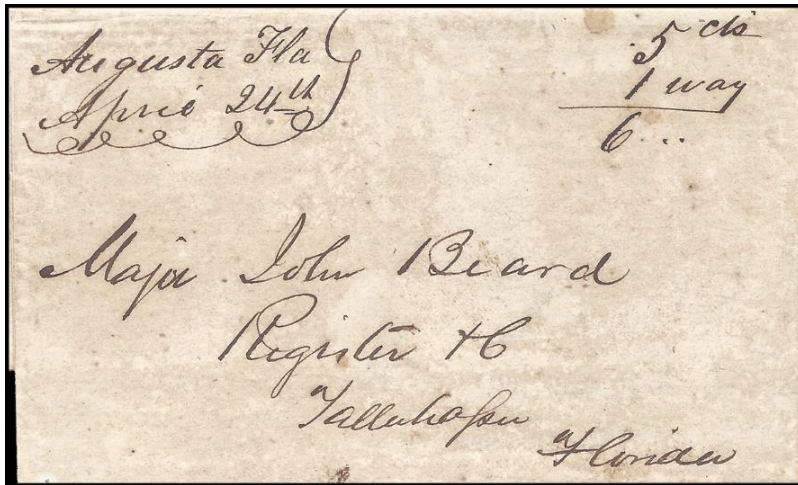 Augusta Fla
April 24th
5 cts
1 way
6
Major John Beard
Register &C
Tallahassee
Florida